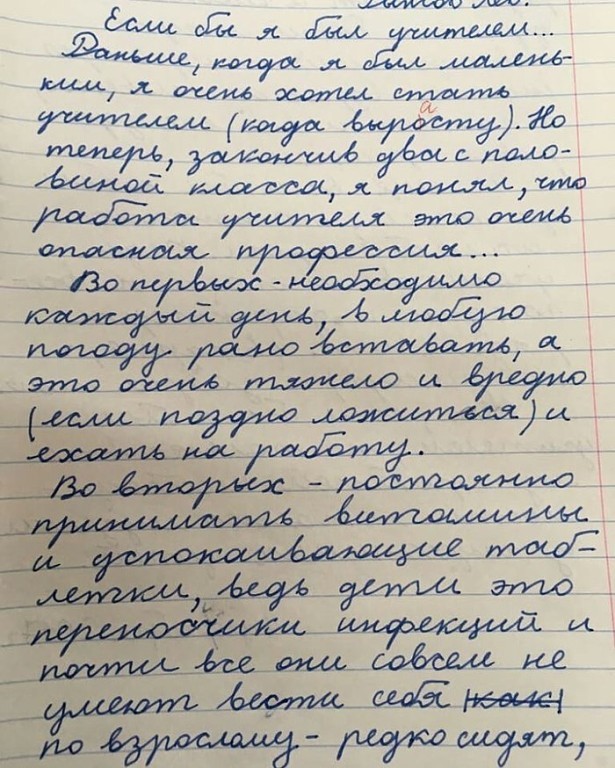 Если бы я был учителем...
Раньше, когда я был малень-
ким, я очень хотел стать
учителем (когда выросту). Но
теперь, закончив два с поло-
виной класса, я понял, что
работа учителя это очень
опасная профессия...
Во первых - необходимо
каждый день, в любую
погоду рано вставать, а
это очень тяжело и вредно
(если поздно ложиться) и
ехать на работу.
Во вторых - постоянно
принимать витамины
и успокаивающие таб-
летки, ведь дети это
переносчики инфекций и
почти все они совсем не
умеют вести себя как
по взрослому - редко сидят,